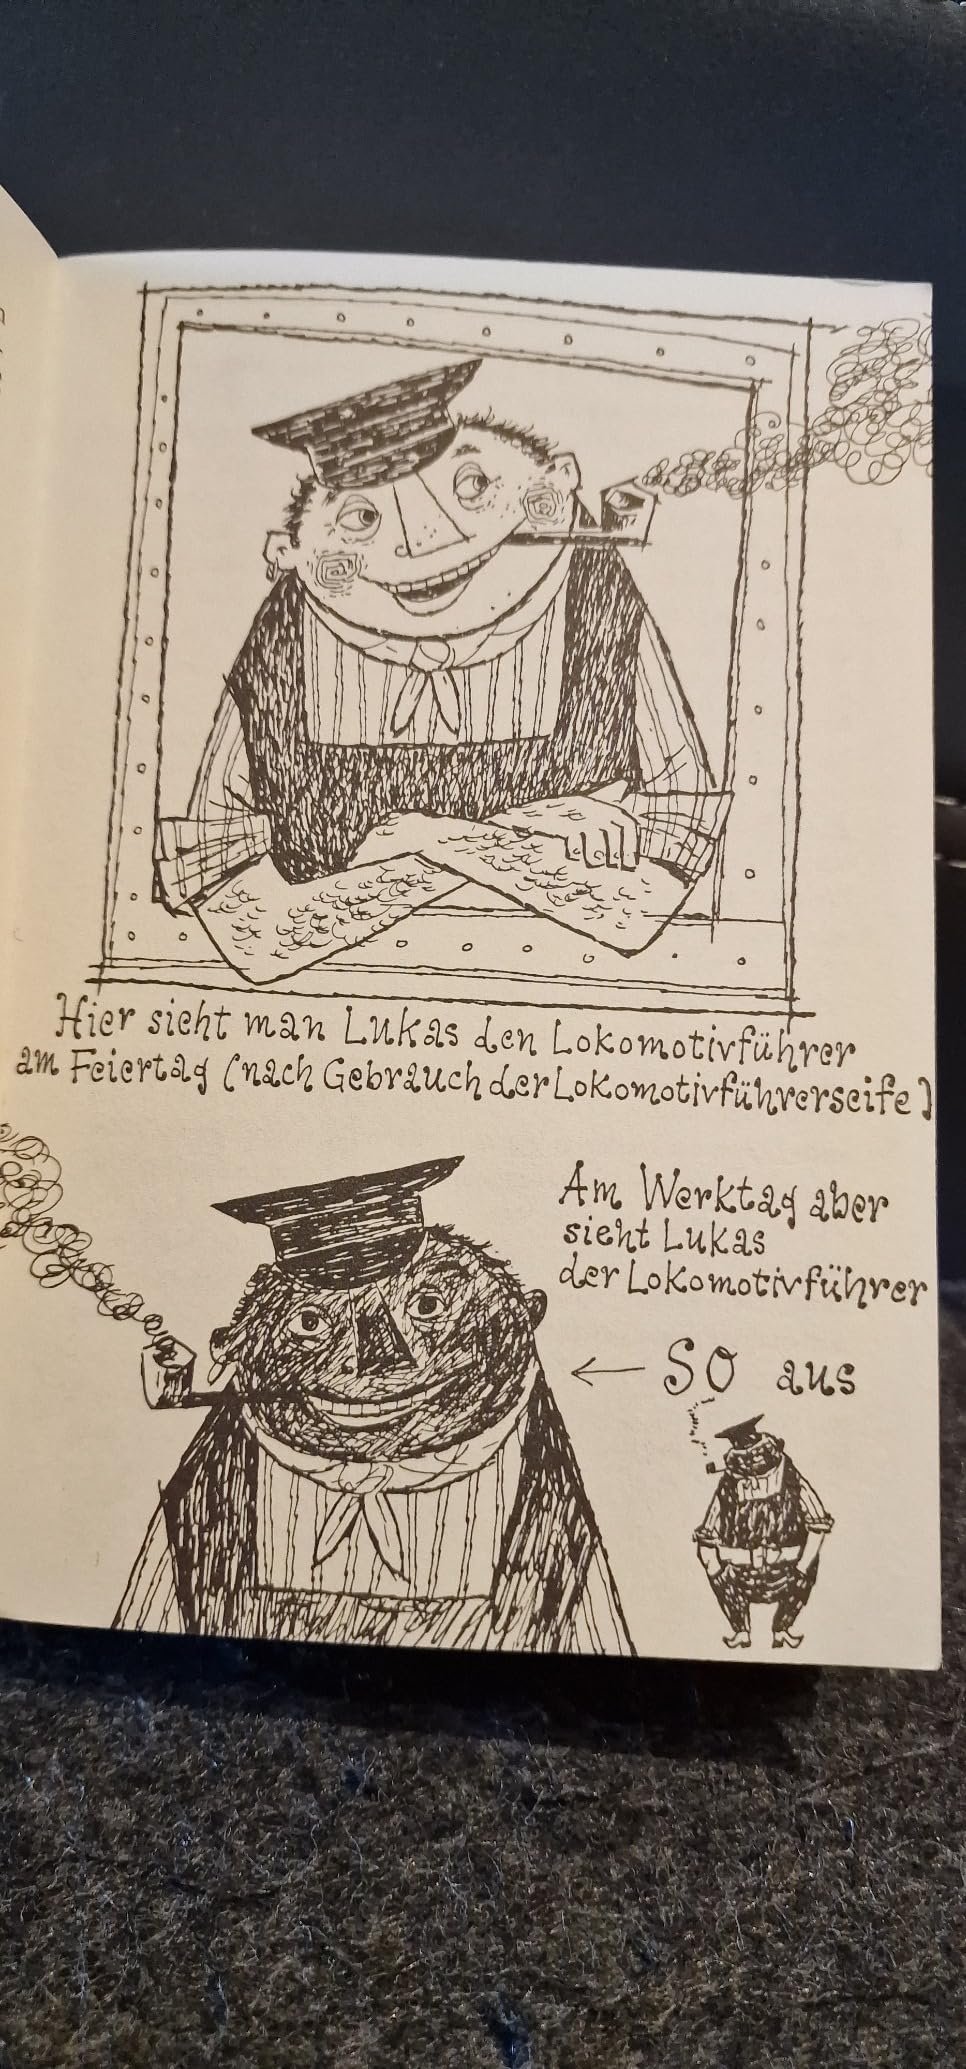 Hier sieht man Lukas den Lokomotivführer
am Feiertag (nach Gebrauch der Lokomotivführerseife)
Am Werktag aber
sieht Lukas
der Lokomotivführer
← SO aus